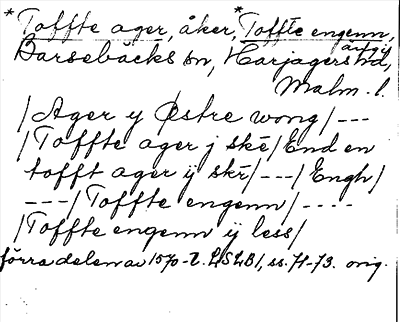 *Toffte ager, åker, *Toffte engenn,
äng i
Barsebäcks sn, Harjagers hd,
Malm. l.
/Ager y Østre wong/ ---
/Toffte ager j skē/End en
tofft ager ÿ skē/---/Engh/
---/Toffte engenn/ ----
/Toffte engenn ÿ less/
förra delen av 1570-t. LSLB1, ss. 71-73. orig.